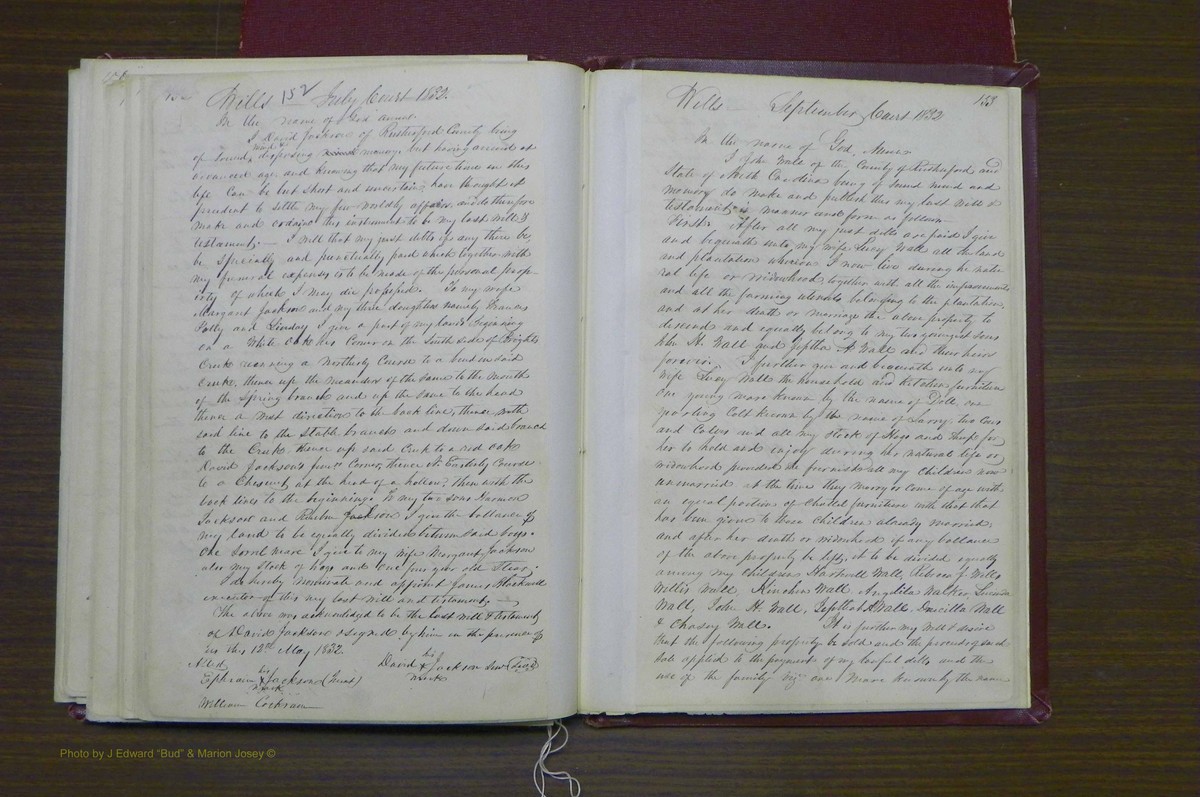 Wills 152 July Court 1832.
In the name of God amen.
I David Jackson of Rutherford County being
of Sound, mind & disposing memory but having arrived at
advanced age and knowing that my future time in this
life Can be but Short and uncertain, have thought it
prudent to settle my few worldly affairs, and do therefore
make and ordain this instrument to be my last Will &
testament. — I will that my just debts if any there be
be specially and punctually paid which together with
my funeral expenses is to be made of the personal prop-
erty of which I may die possessed. To my wife
Margaret Jackson and my three daughters namely Frances
Sally and Lindsay I give a part of my lands Beginning
on a White Oak his Corner on the South side of Brights
Creek running a Northerly Course to a bend in said
Creek, thence up the meanders of the same to the mouth
of the Spring branch and up the same to the head
thence a West direction to the back line, thence with
said line to the Stable branch and down said branch
to the Creek thence up said Creek to a red oak
David Jackson's Corner, thence N. Easterly Course
to a Chesnut at the head of a hollow; then with the
back lines to the beginning. To my two sons Harmon
Jackson and Reuben Jackson I give the ballance of
my land to be equally divided between said boys.
One Sorrel mare I give to my wife Margaret Jackson
also my Stock of hogs and One four year old Stear;
I do hereby nominate and appoint James Blackwell
executor of this my last will and testament. —
The above was acknowledged to be the last will & testament
of David Jackson & signed by him in the presence of
us this 12th May 1832.
Attest David his x mark Jackson Senr (Seal)
Ephraim his x mark Jackson (Jurat)
William Cockram
Wills September Court 1832 153
In the name of God, Amen.
I John Wall of the County of Rutherford and
State of North Carolina being of Sound mind and
memory do make and publish this my last will &
testament in manner and form as follows
First. After all my just debts are paid I give
and bequeath unto my wife Lucy Wall all the land
and plantation whereon I now live during her natu-
ral life or widowhood, together with all the improvements
and all the farming utensils belonging to the plantation,
and at her death or marriage the above property to
descend and equally belong to my two youngest sons
John H. Wall and Jeptha A Wall and their heirs
forever. I further give and bequeath unto my
wife Lucy Wall the household and kitchen furniture
One young mare known by the name of Doll, one
Colt known by the name of Larry, two Cows
and Calves and all my stock of Hogs and Sheep for
her to hold and enjoy during her natural life or
widowhood provided she furnish all my children now
unmarried at the time they marry or come of age with
an equal portion of Chattel furniture with that that
has been given to those Children already married,
and after her death or widowhood if any ballance
of the above property be left, it to be divided equally
among my children Hartwell Wall, Rebecca J. Wells
Willis Wall, Kinchen Wall Angelila Walker, Lucinda
Wall, John H. Wall, Jeptha A Wall, Drucilla Wall
& Chasey Wall. It is further my Will & desire
that the following property be sold and the proceeds of said
Sale applied to the payment of my lawful debts and the
use of the family viz. one Mare known by the name
Photo by J Edward "Bud" & Marion Josey ©